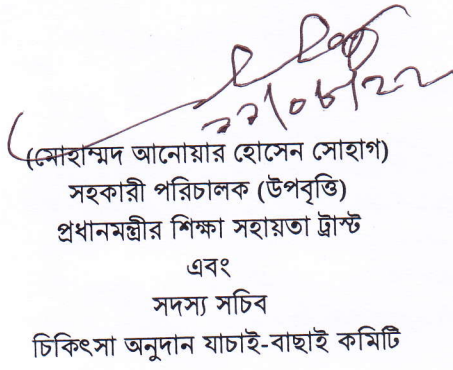 (মোহাম্মদ আনোয়ার হোসেন সোহাগ)
সহকারী পরিচালক (উপবৃত্তি)
প্রধানমন্ত্রীর শিক্ষা সহায়তা ট্রাস্ট
এবং
সদস্য সচিব
চিকিৎসা অনুদান যাচাই-বাছাই কমিটি